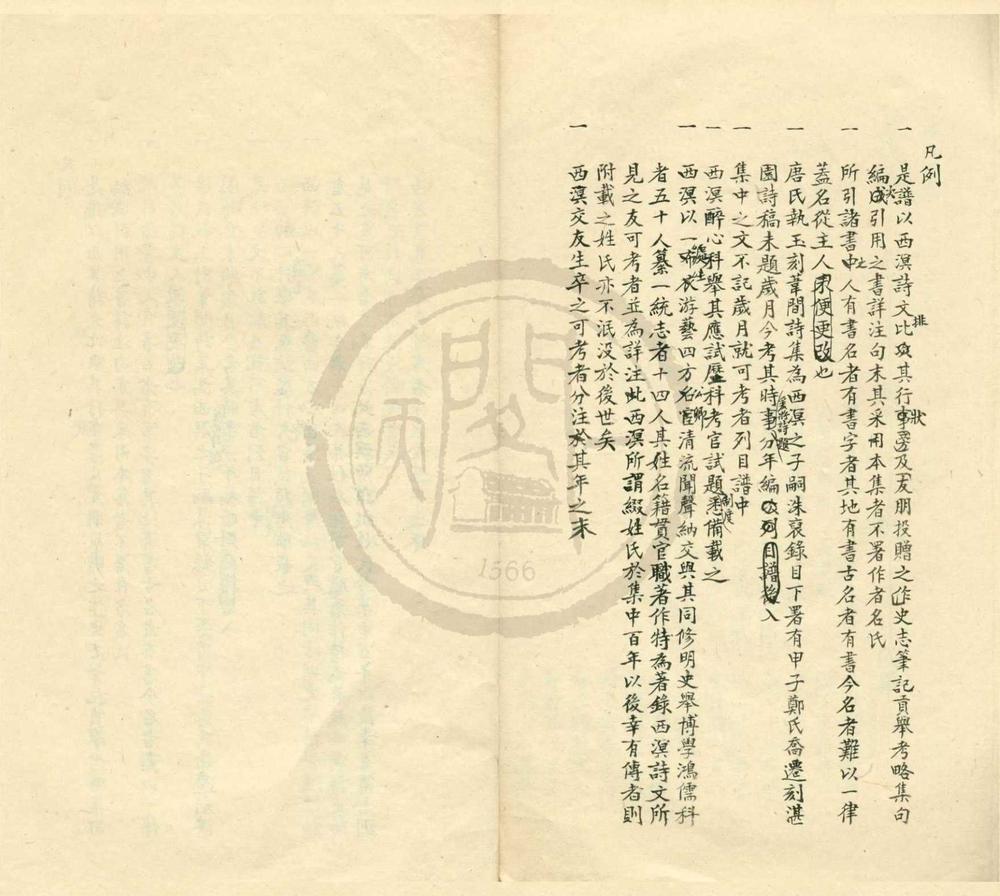 凡例
一 是譜以西溟詩文比排其行狀及友朋投贈之作史志筆記貢舉考略集句
編次成引用之書詳注句末其采用本集者不署作者名氏
一 所引諸書中之人有書名者有書字者其地有書古名者有書今名者難以一律
蓋名從主人不便更改也
一 唐氏執玉刻葦間詩集為西溟之子嗣洙裒錄目下署有甲子鄭氏喬遷刻湛
園詩稿未題歲月今考其時事分年編次列目譜後入
一 集中之文不記歲月就可考者列目譜中
一 西溟醉心科舉其應試歷科考官試題制度悉備載之
一 西溟以一諸生布衣游藝四方名公卿宦清流聞聲納交與其同修明史舉博學鴻儒科
者五十人纂一統志者十四人其姓名籍貫官職著作特為著錄西溟詩文所
見之友可考者並為詳注此西溟所謂綴姓氏於集中百年以後幸有傳者則
附載之姓氏亦不泯沒於後世矣
一 西溟交友生卒之可考者分注於其年之末
1566